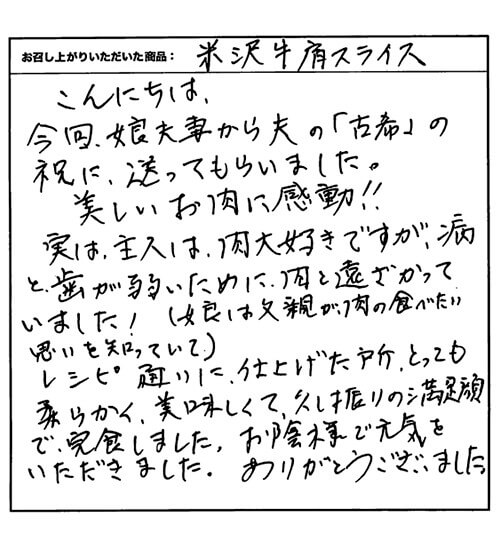 お召し上がりいただいた商品： 米沢牛肩スライス
こんにちは、
今回、娘夫妻から夫の「古希」の
祝に、送ってもらいました。
美しいお肉に感動!!
実は、主人は、肉大好きですが、病
と、歯が弱いために、肉と遠ざかって
いました！（娘は父親が、肉の食べたい
思いを知っていて）
レシピ通りに、仕上げた所、とっても
柔らかく、美味しくて、久し振りの満足顔
で、完食しました。お陰様で元気を
いただきました。ありがとうございました。